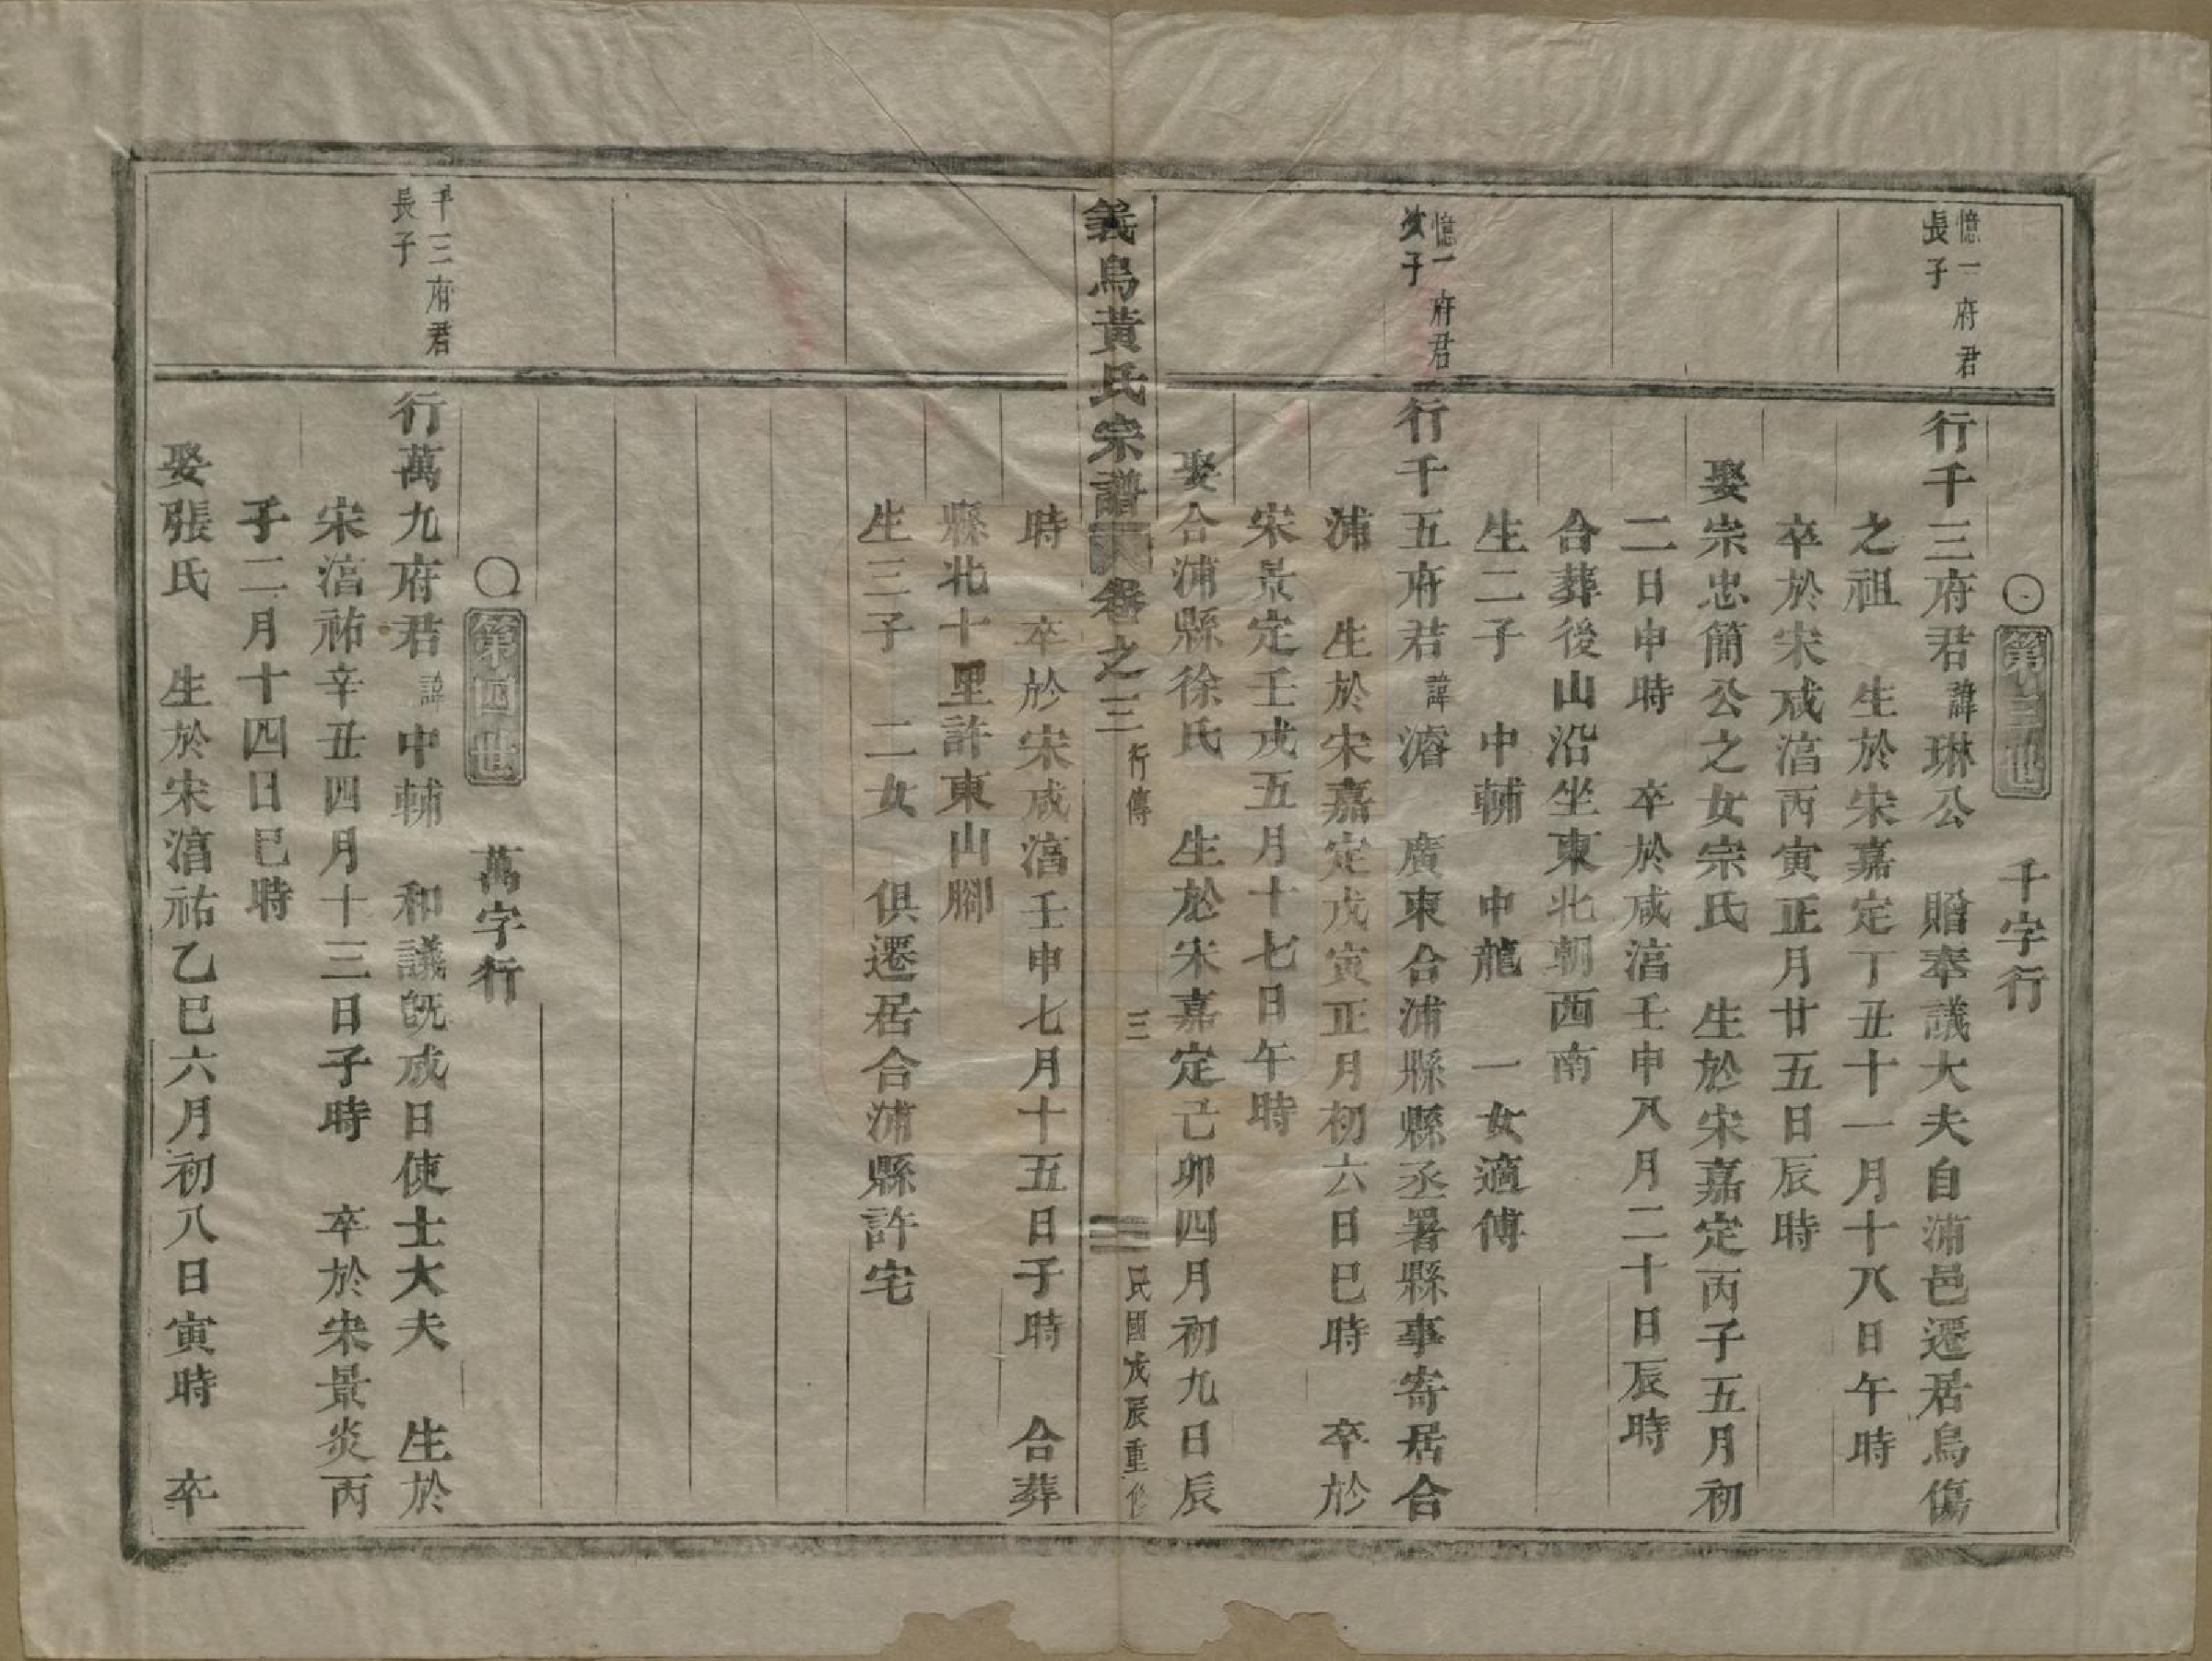 ○第三世　千字行
憶一府君
長子
行千三府君諱琳公　贈奉議大夫自浦邑遷居烏傷
之祖　生於宋嘉定丁丑十一月十八日午時
卒於宋咸淯丙寅正月廿五日辰時
娶宗忠簡公之女宗氏　生於宋嘉定丙子五月初
二日申時　卒於咸淯壬申八月二十日辰時
合葬後山沿坐東北朝西南
生二子　中輔　中龍　一女適傅
憶一府君
次子
行千五府君諱濬　廣東合浦縣縣丞署縣事寄居合
浦　生於宋嘉定戊寅正月初六日巳時　卒於
宋景定壬戌五月十七日午時
娶合浦縣徐氏　生於宋嘉定己卯四月初九日辰
義烏黃氏宗譜　卷之三　行傳　三　民國戊辰重修
時　卒於宋咸淯壬申七月十五日子時　合葬
縣北十里許東山腳
生三子　二女　俱遷居合浦縣許宅
○第四世　萬字行
千三府君
長子
行萬九府君諱中輔　和議旣成日使士大夫　生於
宋淯祐辛丑四月十三日子時　卒於宋景炎丙
子二月十四日巳時
娶張氏　生於宋淯祐乙巳六月初八日寅時　卒